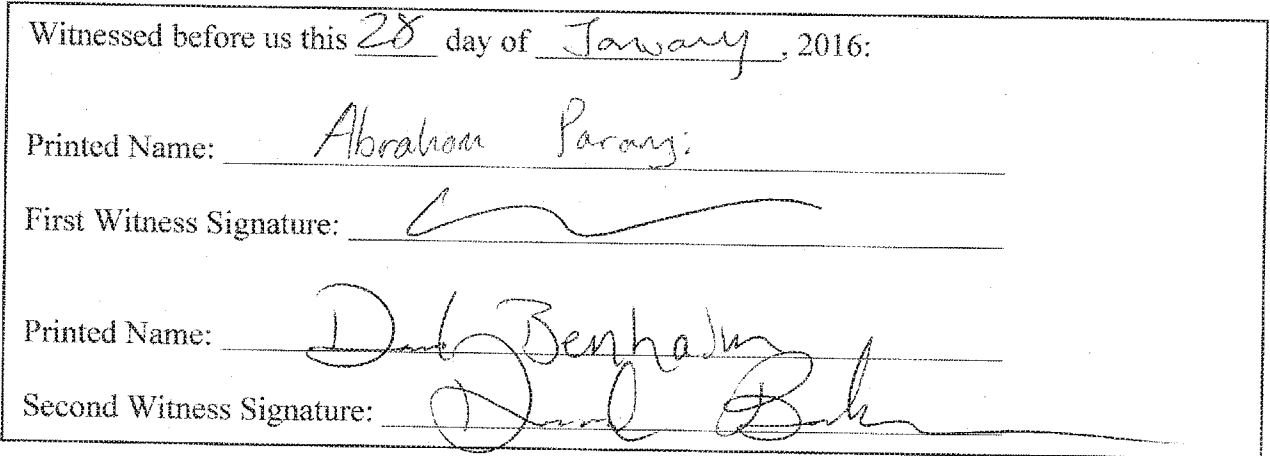 Witnessed before us this 28 day of January, 2016:
Printed Name: Abraham Parangi
First Witness Signature:
Printed Name:
Second Witness Signature: